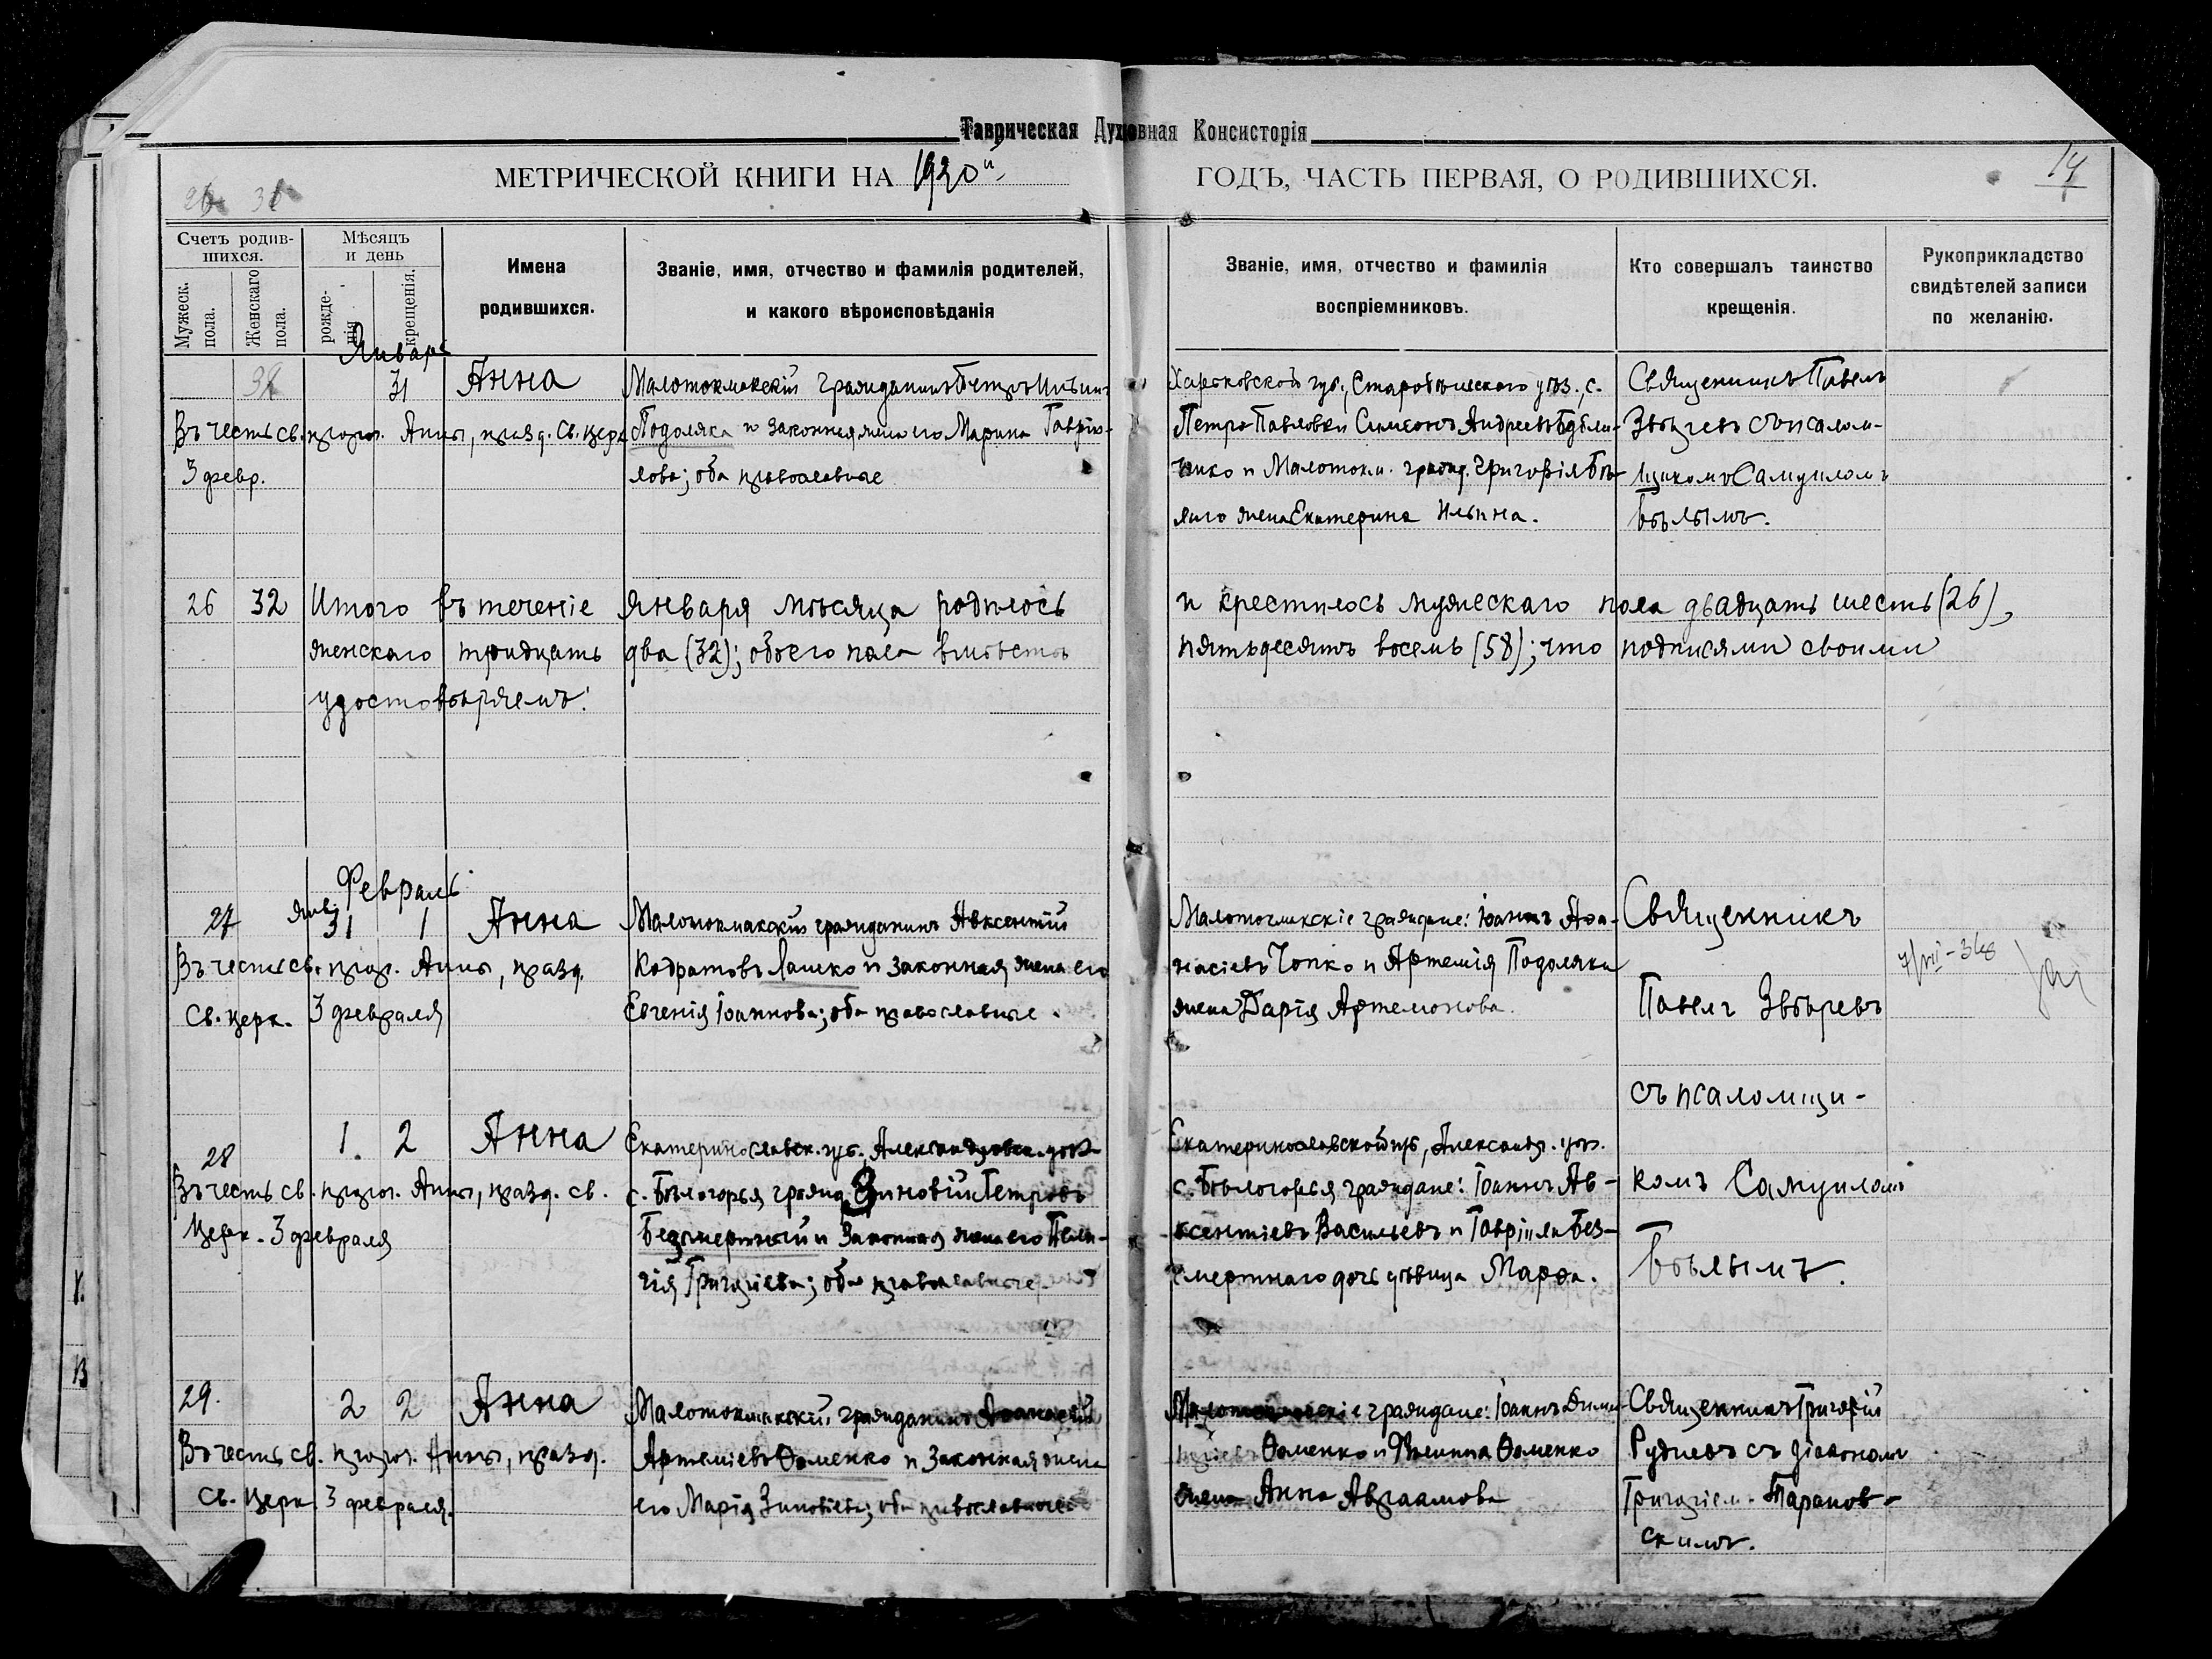 Таврическая Духовная Консисторія
МЕТРИЧЕСКОЙ КНИГИ НА 1920й
ГОДЪ, ЧАСТЬ ПЕРВАЯ, О РОДИВШИХСЯ.
14
26 31
Счетъ родив-
шихся.
Мужеск.
пола.
Женскаго
пола.
Мѣсяцъ
и день
рожде-
нія.
крещенія.
Имена
родившихся.
Званіе, имя, отчество и фамилія родителей,
и какого вѣроисповѣданія
Званіе, имя, отчество и фамилія
воспріемниковъ.
Кто совершалъ таинство
крещенія.
Рукоприкладство
свидѣтелей записи
по желанію.
Январь
32 31 Анна
Въ честь св. прор. Анны, празд. Св. Церк.
3 февр.
Малотокмакскій гражданинъ Петръ Ильинъ
Подоляка и законная жена его Марина Гаврiи-
лова; оба православные
Харьковской губ., Старобѣльскаго уѣз., с.
Петро-Павловки Симеонъ Андреевъ
и Малоток. гражд. Григорія Бѣ-
лаго жена Екатерина Ильина.
Священникъ Павелъ
Звѣревъ съ псалом-
щикомъ Самуиломъ
Бѣлымъ.
26 32 Итого въ теченіе января мѣсяца родилось и крестилось мужескаго пола двадцать шесть (26),
женскаго тридцать два (32); обоего пола вмѣстѣ пятьдесятъ восемь (58); что подписями своими
удостовѣряемъ:
Февраль
27 Янв. 31 1 Анна
Въ честь св. прор. Анны, празд.
Св. Церк. 3 февраля
Малотокмакскій гражданинъ Авксентій
Кодратовъ Лашко и законная жена его
Евгенія Іоаннова; оба православные.
Малотокмакскіе граждане: Іоаннъ Аѳа-
насіевъ Чопко и Артемія Подоляки
жена Дарія Артемонова.
Священникъ
Павелъ Звѣревъ
съ псаломщи-
комъ Самуиломъ
Бѣлымъ.
28 1. 2 Анна
Въ честь св. прор. Анны, празд. св.
Церк. 3 февраля
Екатеринославск. губ., Александровск. уѣз.
с. Бѣлогорья гражд. Зиновій Петровъ
Безсмертный и Законная жена его Пела-
гія Григоріева; оба православные.
Екатеринославской губ., Александр. уѣз.
с. Бѣлогорья граждане: Іоаннъ Ав-
ксентіевъ Васильевъ и Гавріила Без-
смертнаго дочь дѣвица Марѳа.
29. 2 2 Анна
Въ честь св. прор. Анны, празд.
Св. Церк. 3 февраля.
Малотокмакскій гражданинъ Аѳанасій
Артеміевъ Ѳоменко и Законная жена
его Марія Зиновіева; оба православные
Малотокмакскіе граждане: Іоаннъ Дими-
тріевъ Ѳоменко и Филиппа Ѳоменко
жена Анна Авраамова
Священникъ Григорій
Рудневъ съ діакономъ
Григоріем. Таранов-
скимъ.